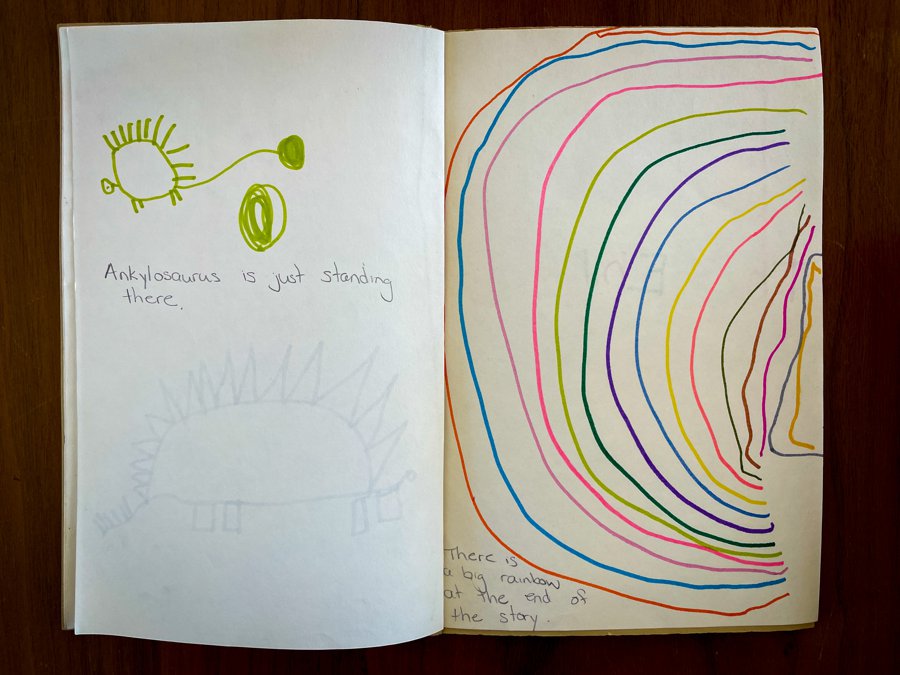 Ankylosaurus is just standing
there.
There is
a big rainbow
at the end of
the story.